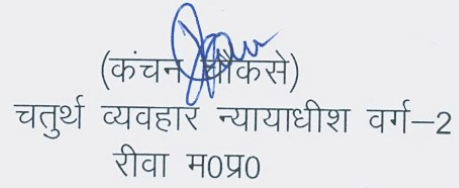 (कंचन चौकसे)
चतुर्थ व्यवहार न्यायाधीश वर्ग–2
रीवा म0प्र0